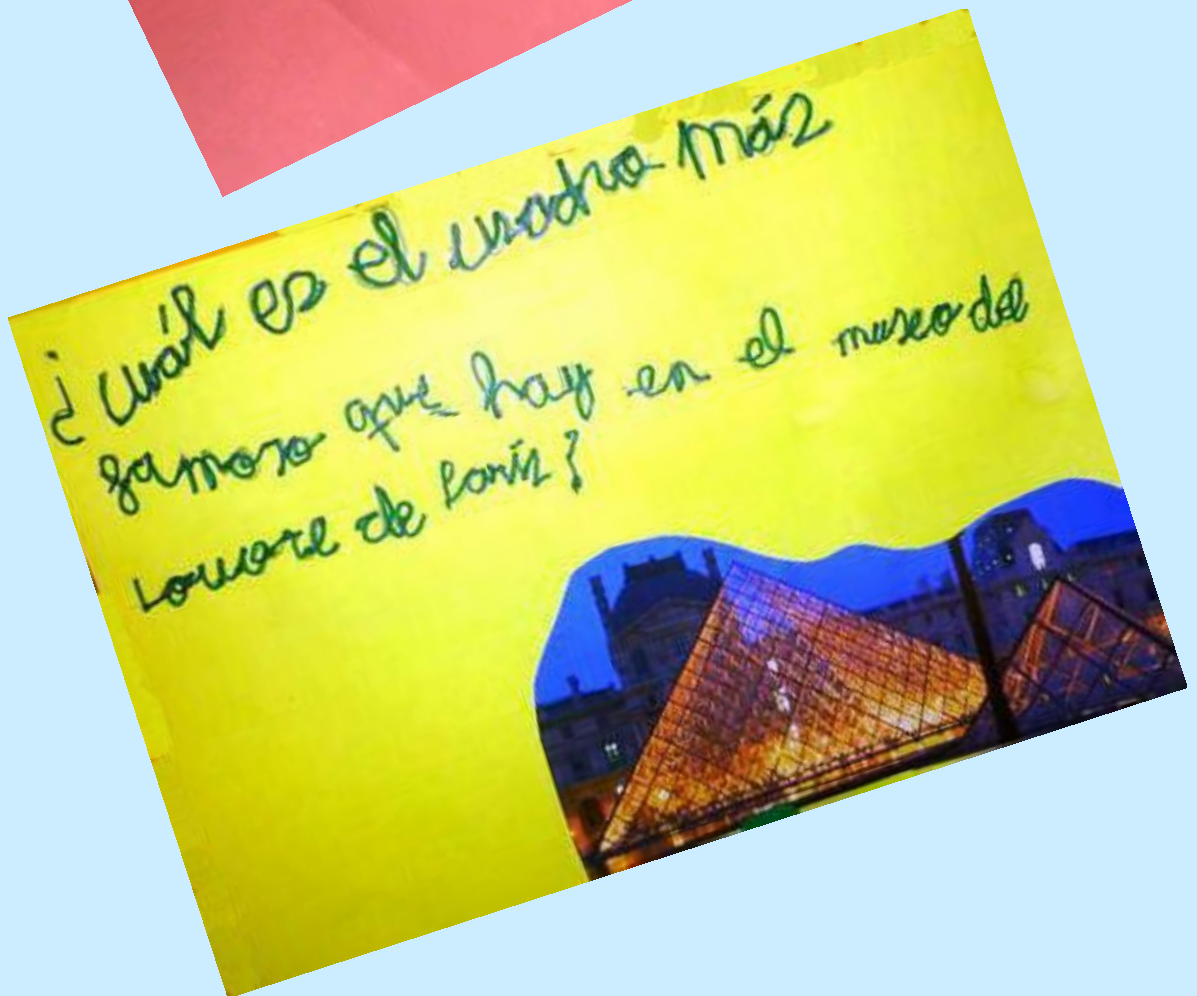 ¿Cuál es el cuadro más
famoso que hay en el museo del
Louvre de París?